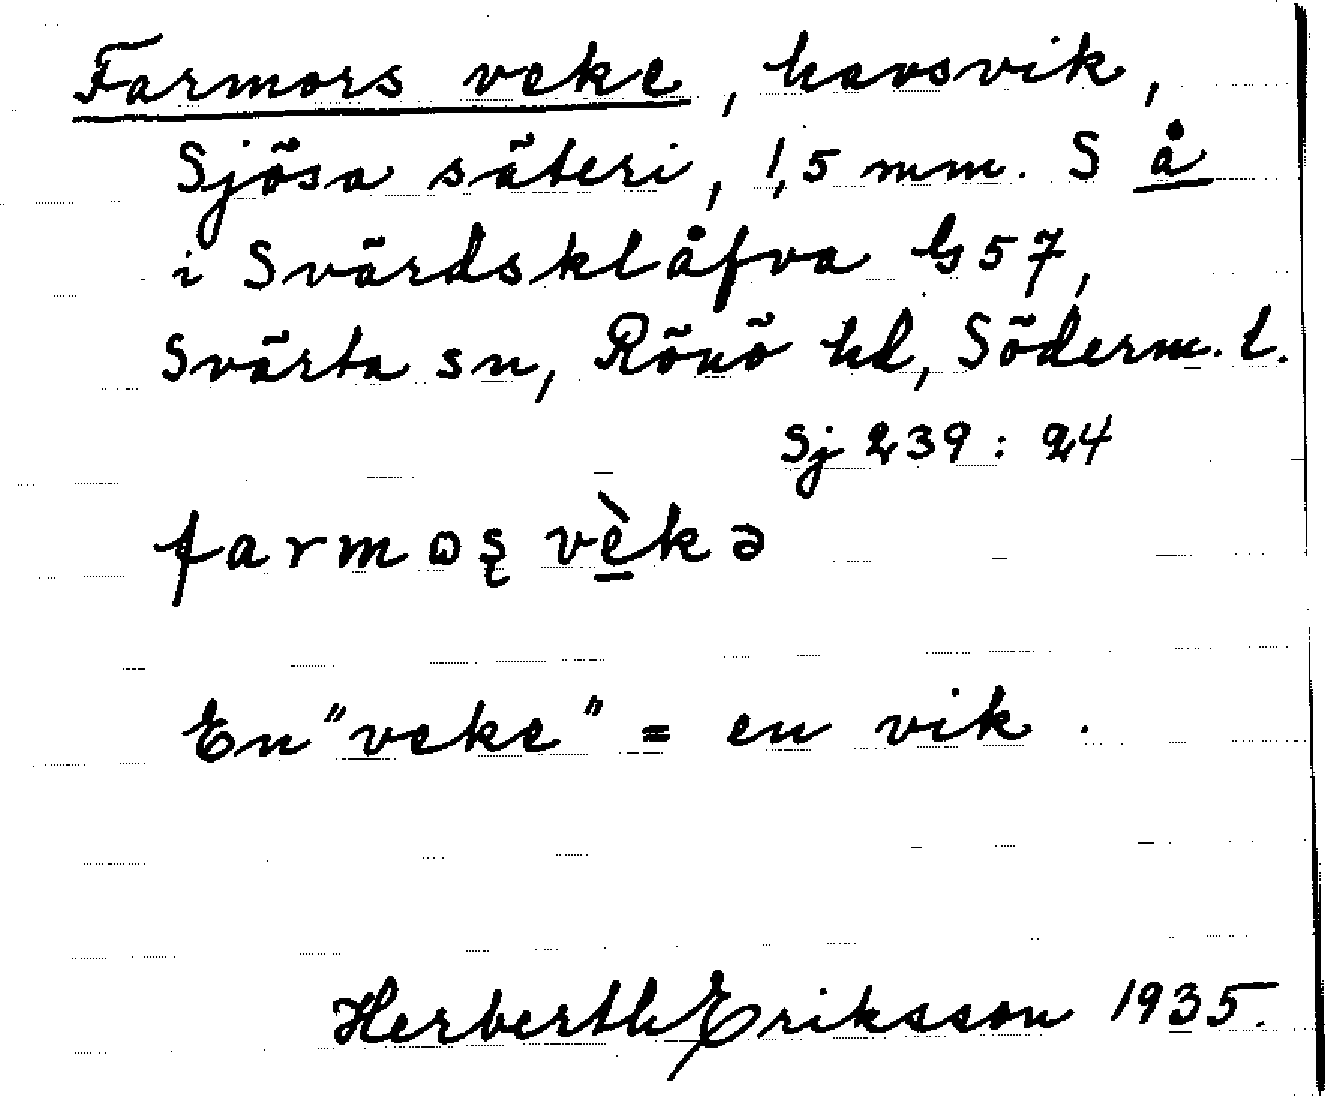 Farmors veke, havsvik,
Sjösa säteri, 1,5 mm. S å
i Svärdsklåfva G 57,
Svärta sn, Rönö hd, Söderm. l.
Sj 239: 24
farmoʂ vèkə
En "veke" = en vik.
Herberth Eriksson 1935.